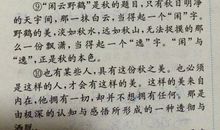 ⑨"闲云野鹤"是秋的题目,只有秋日明净
的天宇间,那一抹白云,当得起一个"闲"字,
野鹤的美,淡如秋水,远如秋山,无法捉摸的那
么一份飘潇,当得起一个"逸"字。"闲"与
"逸",正是秋的本色。
⑩也有某些人,具有这份秋之美。也必须
是这样的人,才会有这样的美。这样的美来自
内在,他拥有一切,却并不想拥有任何。那是
由极深的认知与感悟所形成的一种透彻与
洒脱